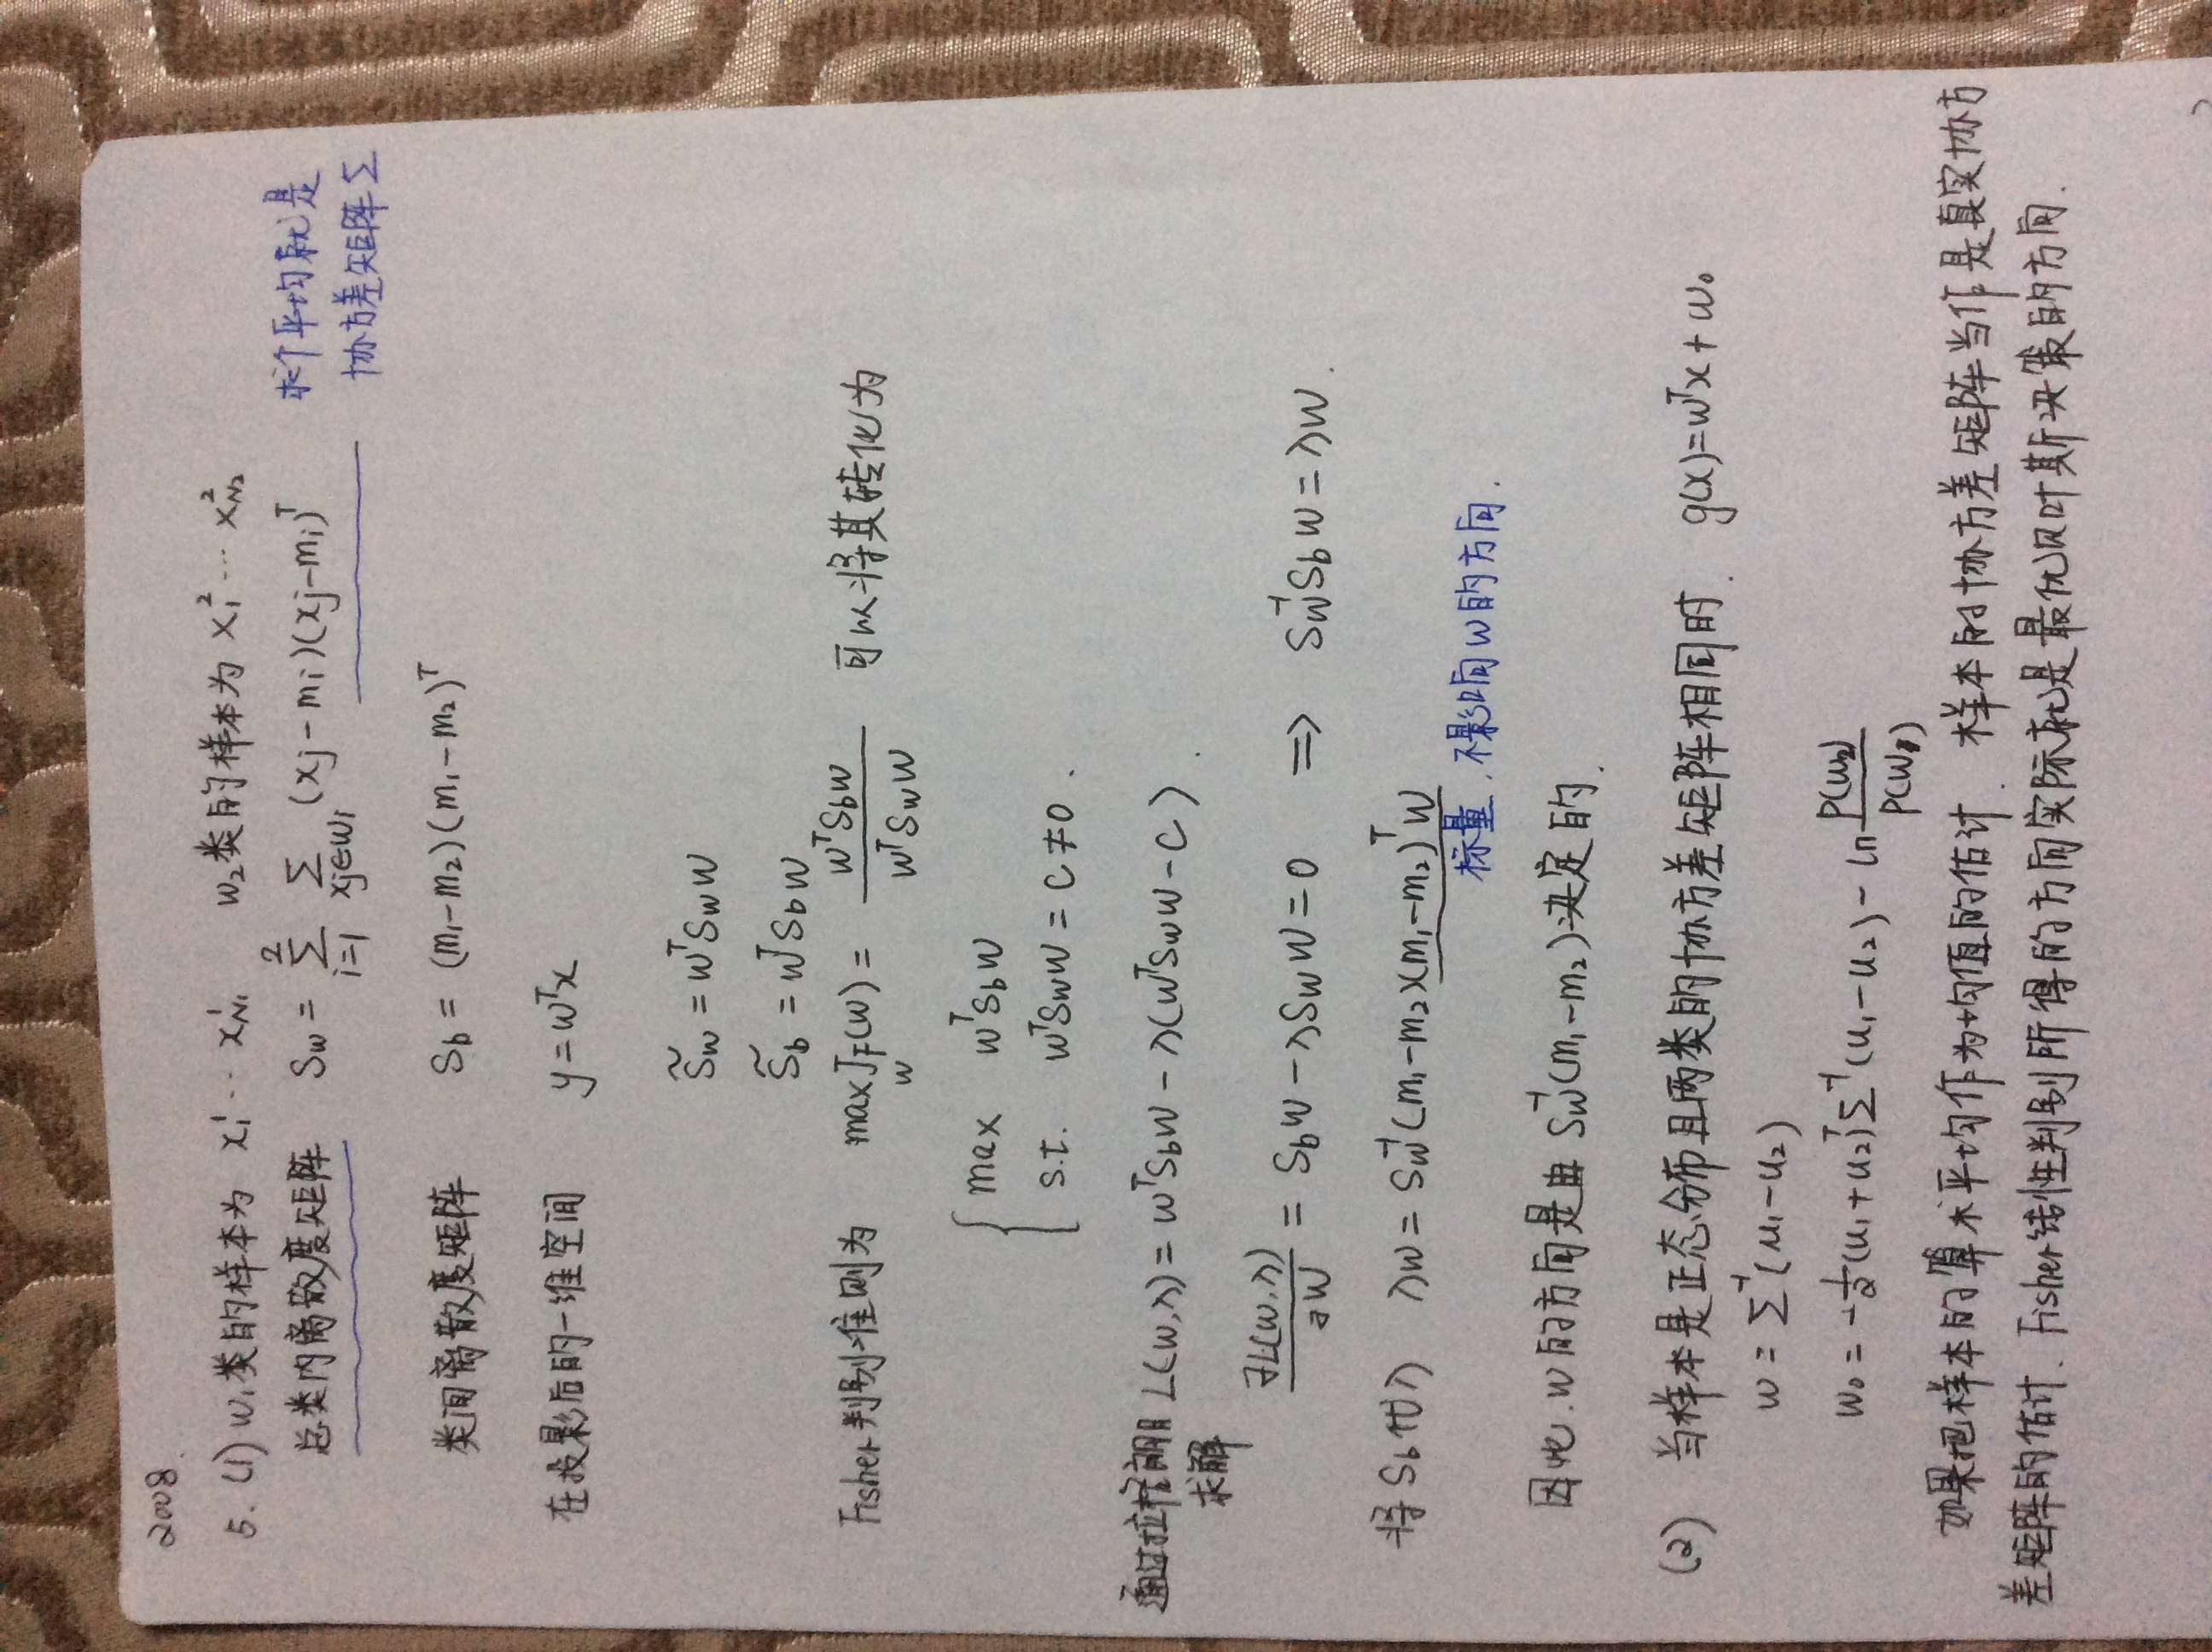 2008.
5. (1) w₁类的样本为 x₁¹ ⋯ x¹_N₁ w₂类的样本为 x₁² ⋯ x²_N₂
总类内离散度矩阵 Sw = Σ_{i=1}^{2} Σ_{xj∈wi} (xj-mi)(xj-mi)ᵀ 求个平均就是
协方差矩阵Σ
类间离散度矩阵 Sb = (m₁-m₂)(m₁-m₂)ᵀ
在投影后的一维空间 y=wᵀx
S̃w = wᵀSww
S̃b = wᵀSbw
Fisher判别准则为 max_w J_F(w) = wᵀSbw / wᵀSww 可以将其转化为
{ max wᵀSbw
s.t. wᵀSww = C ≠ 0.
通过拉格朗日 L(w,λ) = wᵀSbw - λ(wᵀSww - C).
求解
∂L(w,λ)/∂w = Sbw - λSww = 0 ⇒ Sw⁻¹Sbw = λw.
将Sb代入 λw = Sw⁻¹(m₁-m₂)(m₁-m₂)ᵀw
标量,不影响w的方向.
因此,w的方向是由 Sw⁻¹(m₁-m₂)决定的.
(2) 当样本是正态分布且两类的协方差矩阵相同时. g(x)=wᵀx+w₀
w = Σ⁻¹(u₁-u₂)
w₀ = -½(u₁+u₂)ᵀΣ⁻¹(u₁-u₂) - ln P(w₂)/P(w₁)
如果把样本的算术平均作为均值的估计.样本的协方差矩阵当作是真实协方
差矩阵的估计.Fisher线性判别所得的方向实际就是最优贝叶斯决策的方向.